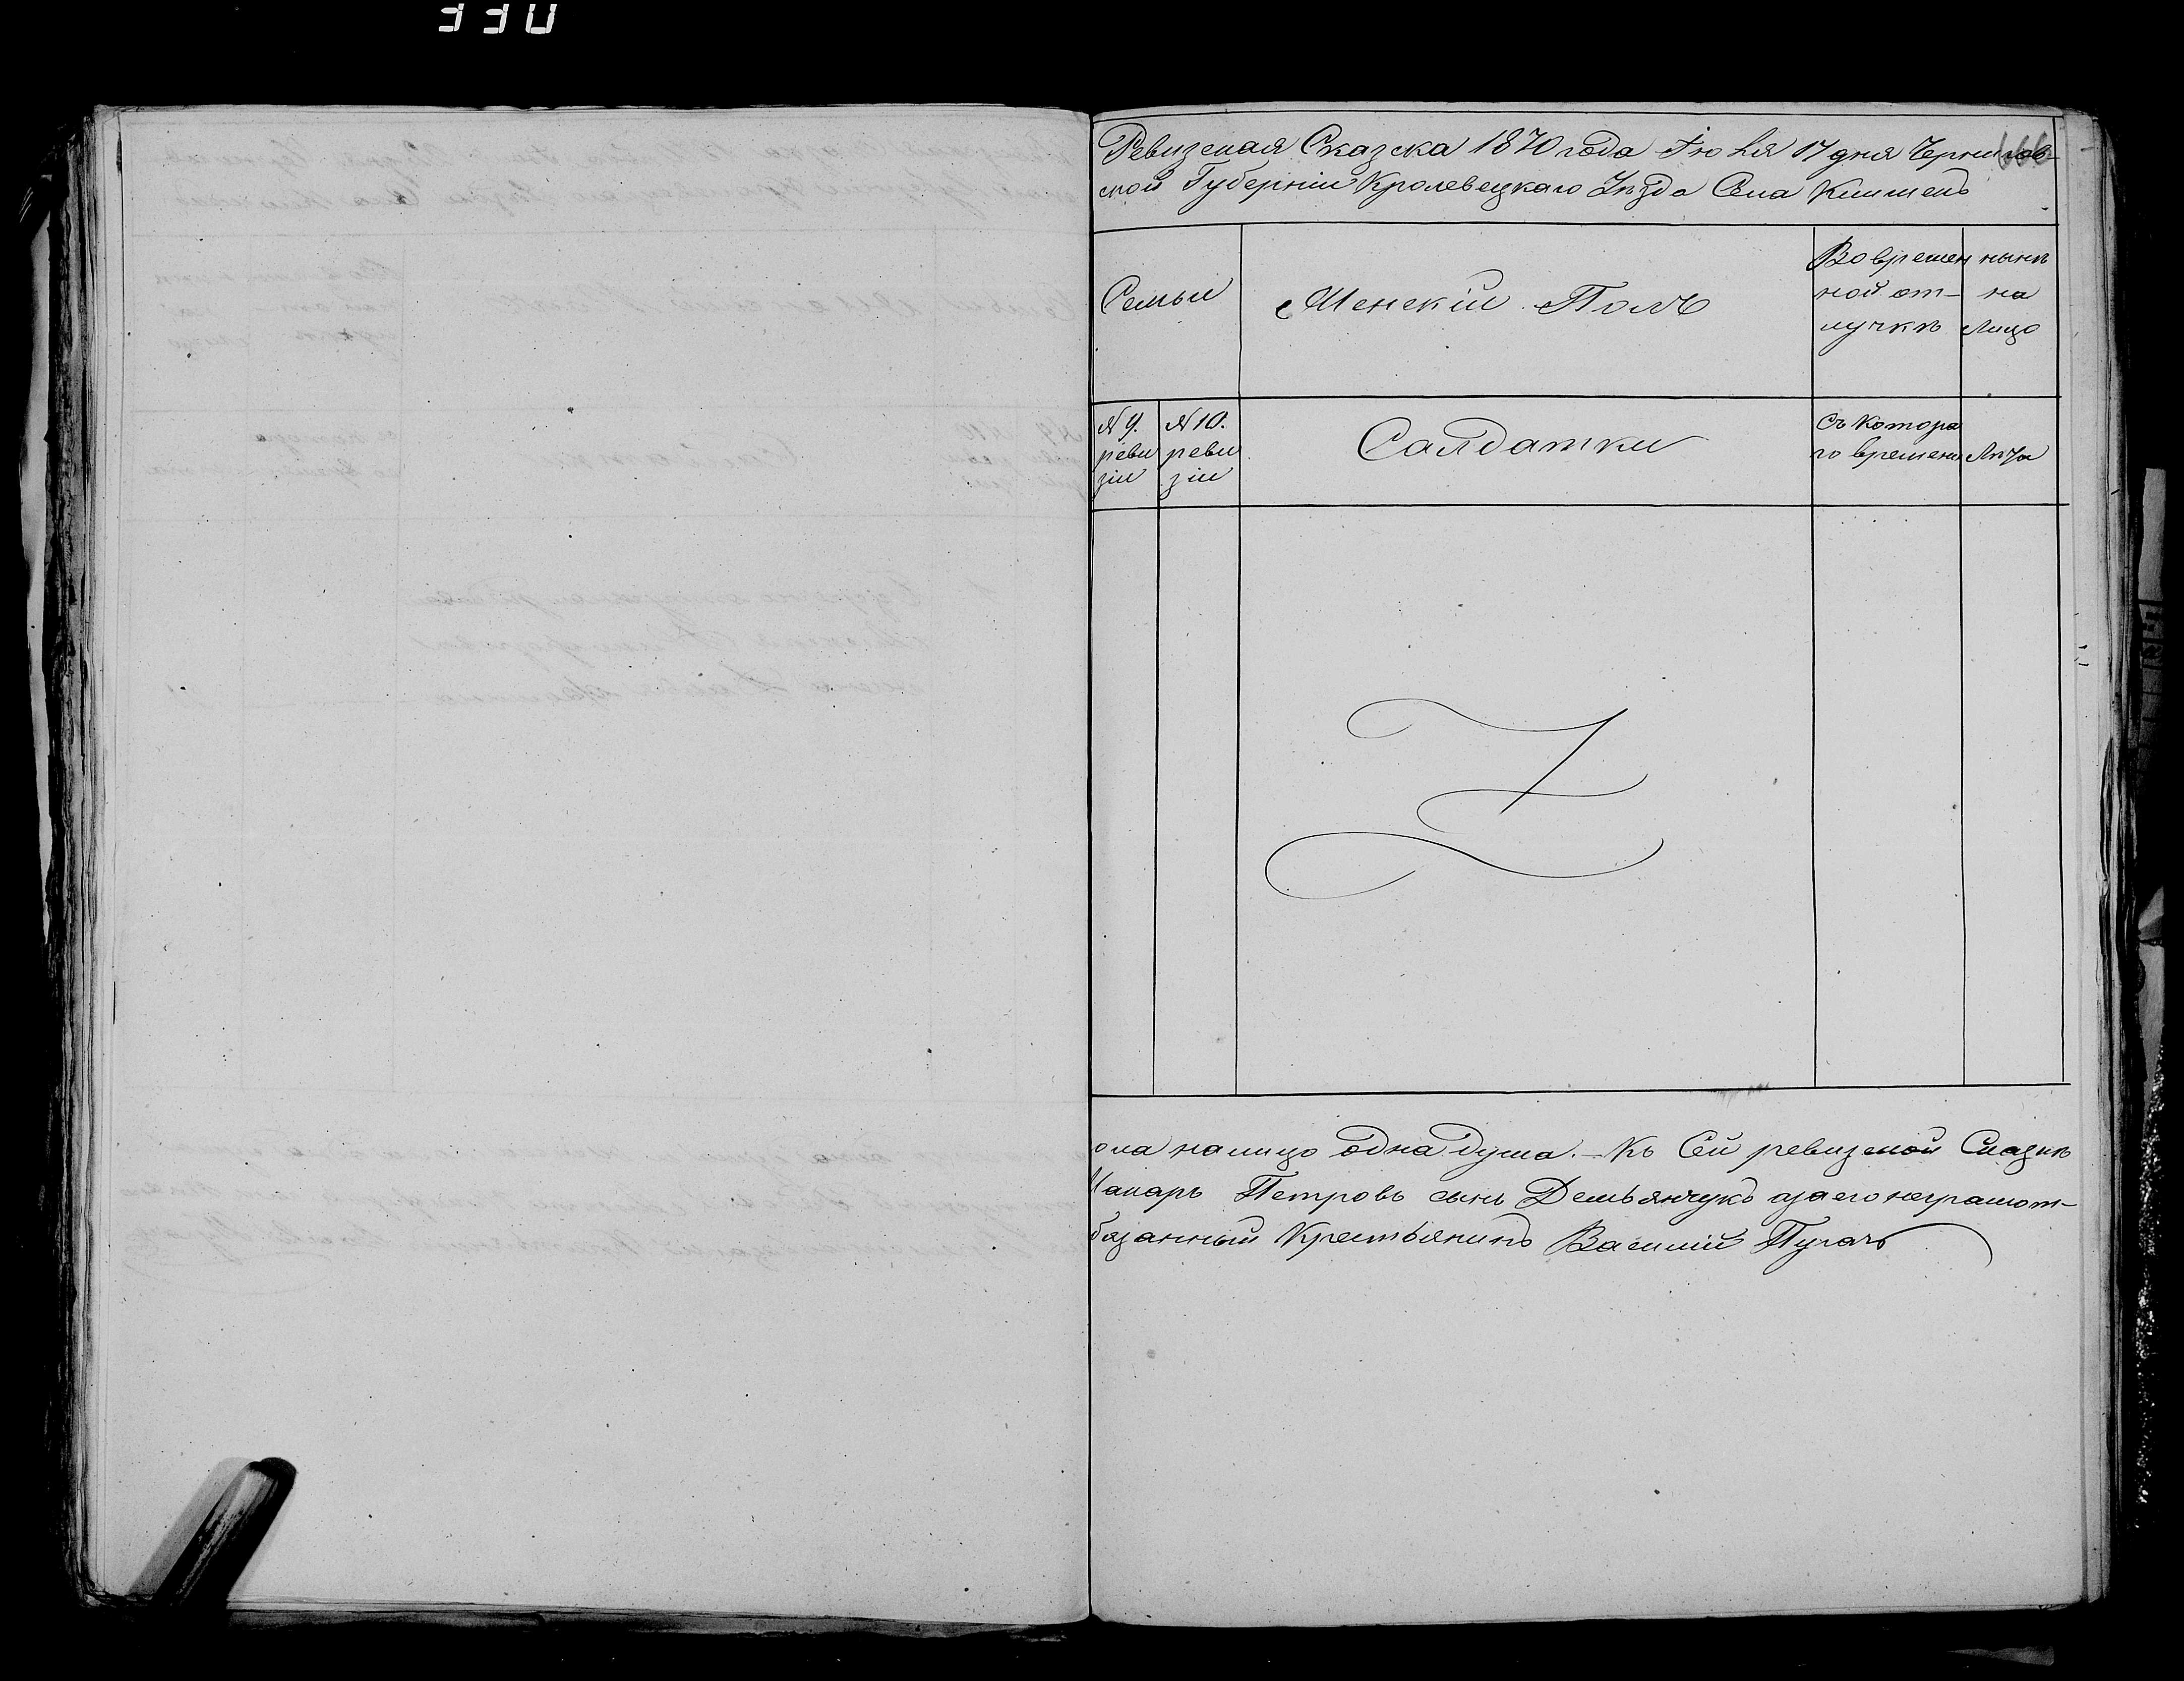 330
Ревизская Сказска 1870 года Іюня 17 дня Чернигов-
ской Губерніи Кролевецкаго Уѣзда Села
Семьи
Женскій Полъ
Во времен
ной от-
лучкѣ
нынѣ
на
лицо
№ 9.
реви
зіи
№ 10.
реви
зіи
Салдатки
Съ котора
го времени
Лѣта
ола налицо одна душа. — Къ Сей ревизской Сказкѣ
Макаръ Петровъ сынъ Демьянчукъ а за его неграмот-
бязанный Крестьянинъ Василій Пугачъ